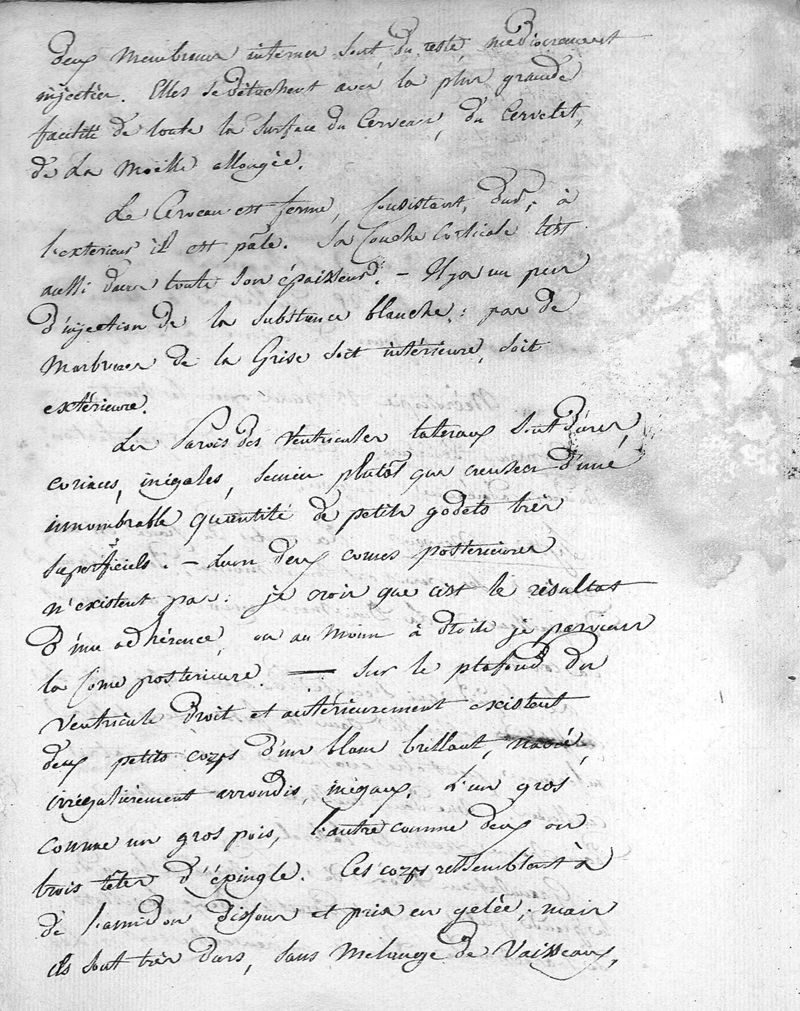 deux membranes internes sont du reste médiocrement
injectées. Elles se détachent avec la plus grande
facilité de toute la surface du cerveau, du cervelet,
de la moëlle allongée.
Le cerveau est ferme, consistant, dur; à
l'extérieur il est pâle. Sa couche corticale l'est
aussi dans toute son épaisseur. — Il y a un peu
d'injection de la substance blanche; pas de
marbrures de la grise soit intérieure, soit
extérieure.
Les parois des ventricules latéraux sont dures,
coriaces, inégales, semées plutôt que creusées d'une
innombrable quantité de petits godets très
superficiels. — Les deux cornes postérieures
n'existent pas: je crois que c'est le résultat
d'une adhérence, où au moins à droite je parvears
la corne postérieure. — Sur le plafond du
ventricule droit et antérieurement existent
deux petits corps d'un blanc brillant, nacré,
irrégulièrement arrondis, inégaux, l'un gros
comme un gros pois, l'autre comme deux ou
trois têtes d'épingle. Ces corps ressemblent à
de l'amidon dissous et pris en gelée; mais
ils sont très durs, sans mélange de vaisseaux,